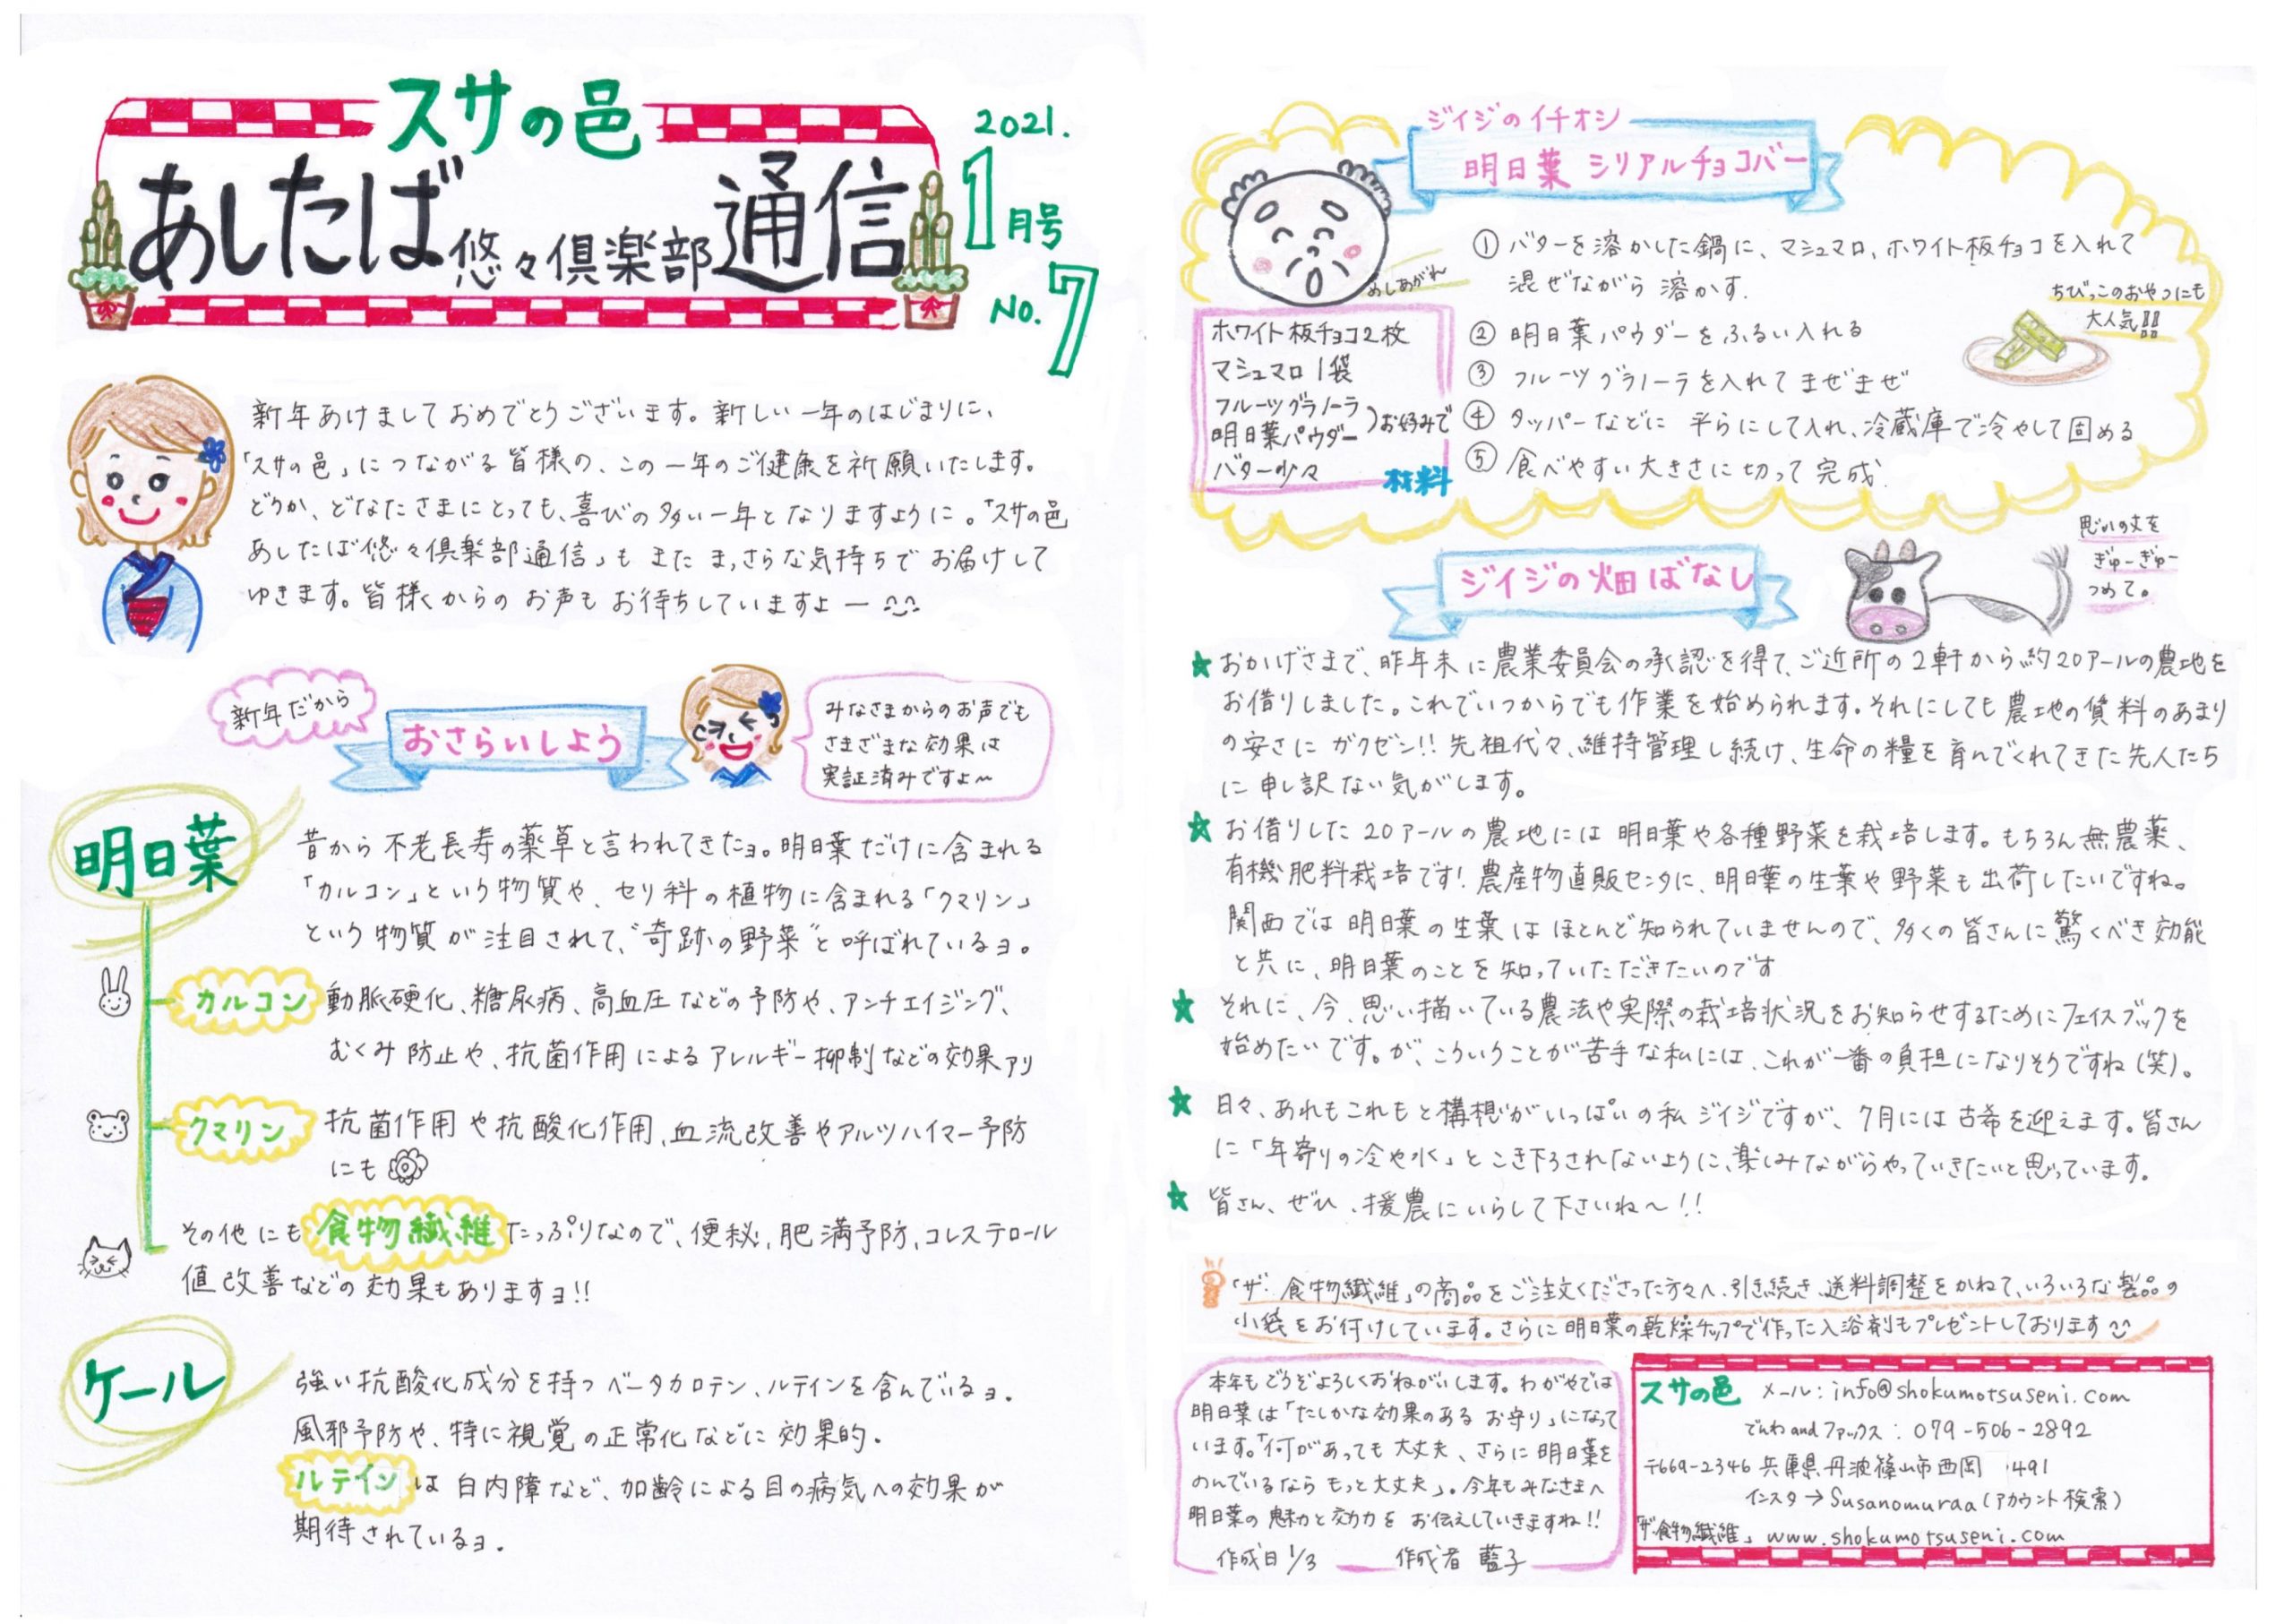 スサの邑
あしたば悠々倶楽部通信
2021.
1月号
No.7
新年あけましておめでとうございます。新しい一年のはじまりに、
「スサの邑」につながる皆様の、この一年のご健康を祈願いたします。
どうか、どなたさまにとっても、喜びの多い一年となりますように。「スサの邑
あしたば悠々倶楽部通信」も また まっさらな気持ちで お届けして
ゆきます。皆様からの お声も お待ちしていますよー
新年だから
おさらいしよう
みなさまからのお声でも
さまざまな効果は
実証済みですよ〜
明日葉
昔から不老長寿の薬草と言われてきたョ。明日葉だけに含まれる
「カルコン」という物質や、セリ科の植物に含まれる「クマリン」
という物質が注目されて、"奇跡の野菜"と呼ばれているョ。
カルコン 動脈硬化、糖尿病、高血圧などの予防や、アンチエイジング、
むくみ防止や、抗菌作用によるアレルギー抑制などの効果アリ
クマリン 抗菌作用や抗酸化作用、血流改善やアルツハイマー予防
にも
その他にも 食物繊維 たっぷりなので、便秘、肥満予防、コレステロール
値改善などの効果もありますョ!!
ケール
強い抗酸化成分を持つ ベータカロテン、ルテインを含んでいるョ.
風邪予防や、特に視覚の正常化などに効果的.
ルテイン は 白内障など、加齢による目の病気への効果が
期待されているョ.
ジイジのイチオシ
明日葉 シリアルチョコバー
めしあがれ
ホワイト板チョコ2枚
マシュマロ 1袋
フルーツグラノーラ
明日葉パウダー
)お好みで
バター少々
材料
① バターを溶かした鍋に、マシュマロ、ホワイト板チョコを入れて
混ぜながら 溶かす.
② 明日葉パウダーをふるい入れる
③ フルーツグラノーラを入れて まぜまぜ
④ タッパーなどに 平らにして入れ、冷蔵庫で冷やして固める
⑤ 食べやすい大きさに切って 完成.
ちびっこのおやつにも
大人気!!
ジイジの畑ばなし
思いの丈を
ぎゅーぎゅー
つめて。
★おかげさまで、昨年末に農業委員会の承認を得て、ご近所の2軒から約20アールの農地を
お借りしました。これでいつからでも作業を始められます。それにしても農地の賃料のあまり
の安さに ガクゼン!! 先祖代々、維持管理し続け、生命の糧を育んでくれてきた先人たち
に申し訳ない気がします。
★お借りした20アールの農地には 明日葉や各種野菜を栽培します。もちろん無農薬、
有機肥料栽培です! 農産物直販センタに、明日葉の生葉や野菜も出荷したいですね。
関西では 明日葉の生葉は ほとんど知られていませんので、多くの皆さんに驚くべき効能
と共に、明日葉のことを知っていただきたいのです
★それに、今、思い描いている農法や実際の栽培状況をお知らせするためにフェイスブックを
始めたいです。が、こういうことが苦手な私には、これが一番の負担になりそうですね(笑)。
★日々、あれもこれもと構想がいっぱいの私 ジイジですが、7月には古希を迎えます。皆さん
に「年寄りの冷や水」とこき下ろされないように、楽しみながらやっていきたいと思っています。
★皆さん、ぜひ、援農にいらして下さいね〜!!
「ザ・食物繊維」の商品をご注文くださった方々へ、引き続き、送料調整をかねて、いろいろな製品の
小袋をお付けしています。さらに明日葉の乾燥チップで作った入浴剤もプレゼントしております
本年もどうぞよろしくおねがいします。わがやでは
明日葉は「たしかな効果のある お守り」になって
います。「何があっても大丈夫、さらに明日葉を
のんでいるなら もっと大丈夫」。今年もみなさまへ
明日葉の魅力と効力を お伝えしていきますね!!
作成日1/3 作成者 藍子
スサの邑 メール:info@shokumotsuseni.com
でんわandファックス:079-506-2892
〒669-2346 兵庫県丹波篠山市西岡 491
インスタ→Susanomuraa(アカウント検索)
「ザ・食物繊維」www.shokumotsuseni.com